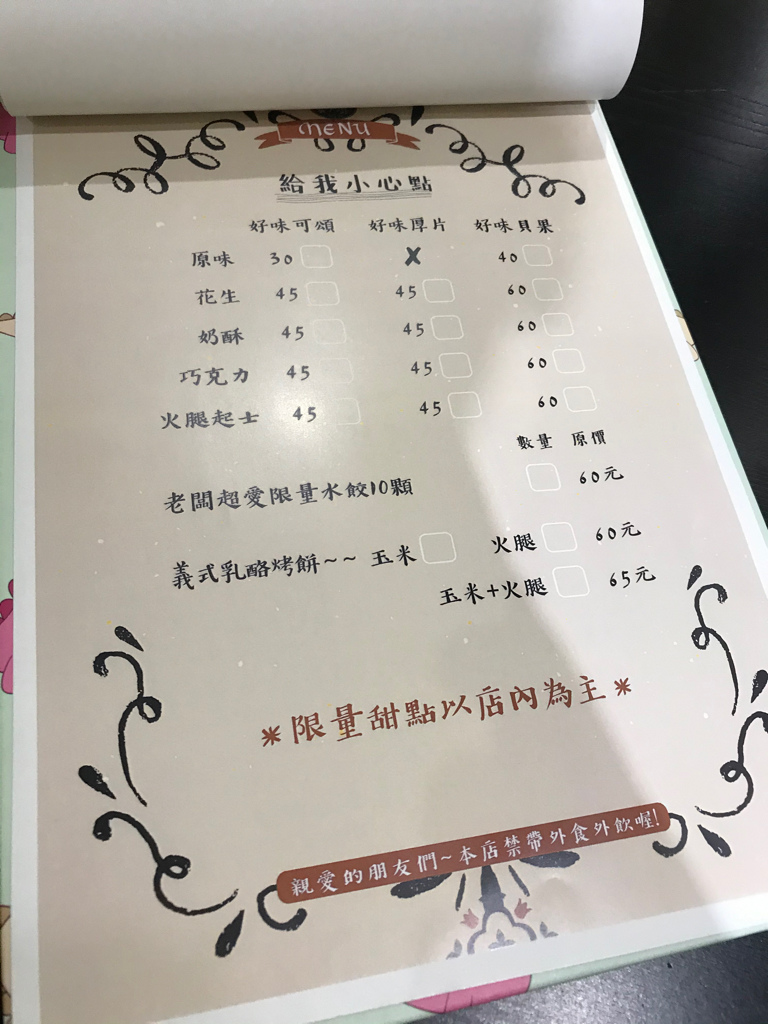 MENU
給我小心點
好味可頌 好味厚片 好味貝果
原味 30 X 40
花生 45 45 60
奶酥 45 45 60
巧克力 45 45 60
火腿起士 45 45 60
數量 原價
老闆超愛限量水餃10顆 60元
義式乳酪烤餅~~ 玉米 火腿 60元
玉米+火腿 65元
*限量甜點以店內為主*
親愛的朋友們~本店禁帶外食外飲喔!